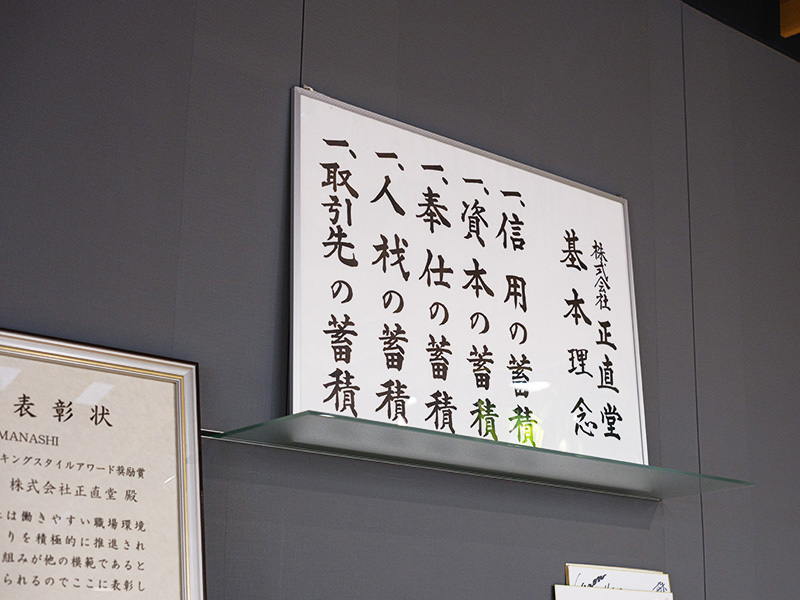 株式会社 正直堂
基本理念
一、信用の蓄積
一、資本の蓄積
一、奉仕の蓄積
一、人材の蓄積
一、取引先の蓄積
表彰状
MANASHI
キングスタイルアワード奨励賞
株式会社正直堂 殿
は働きやすい職場環境
りを積極的に推進され
組みが他の模範であると
られるのでここに表彰し